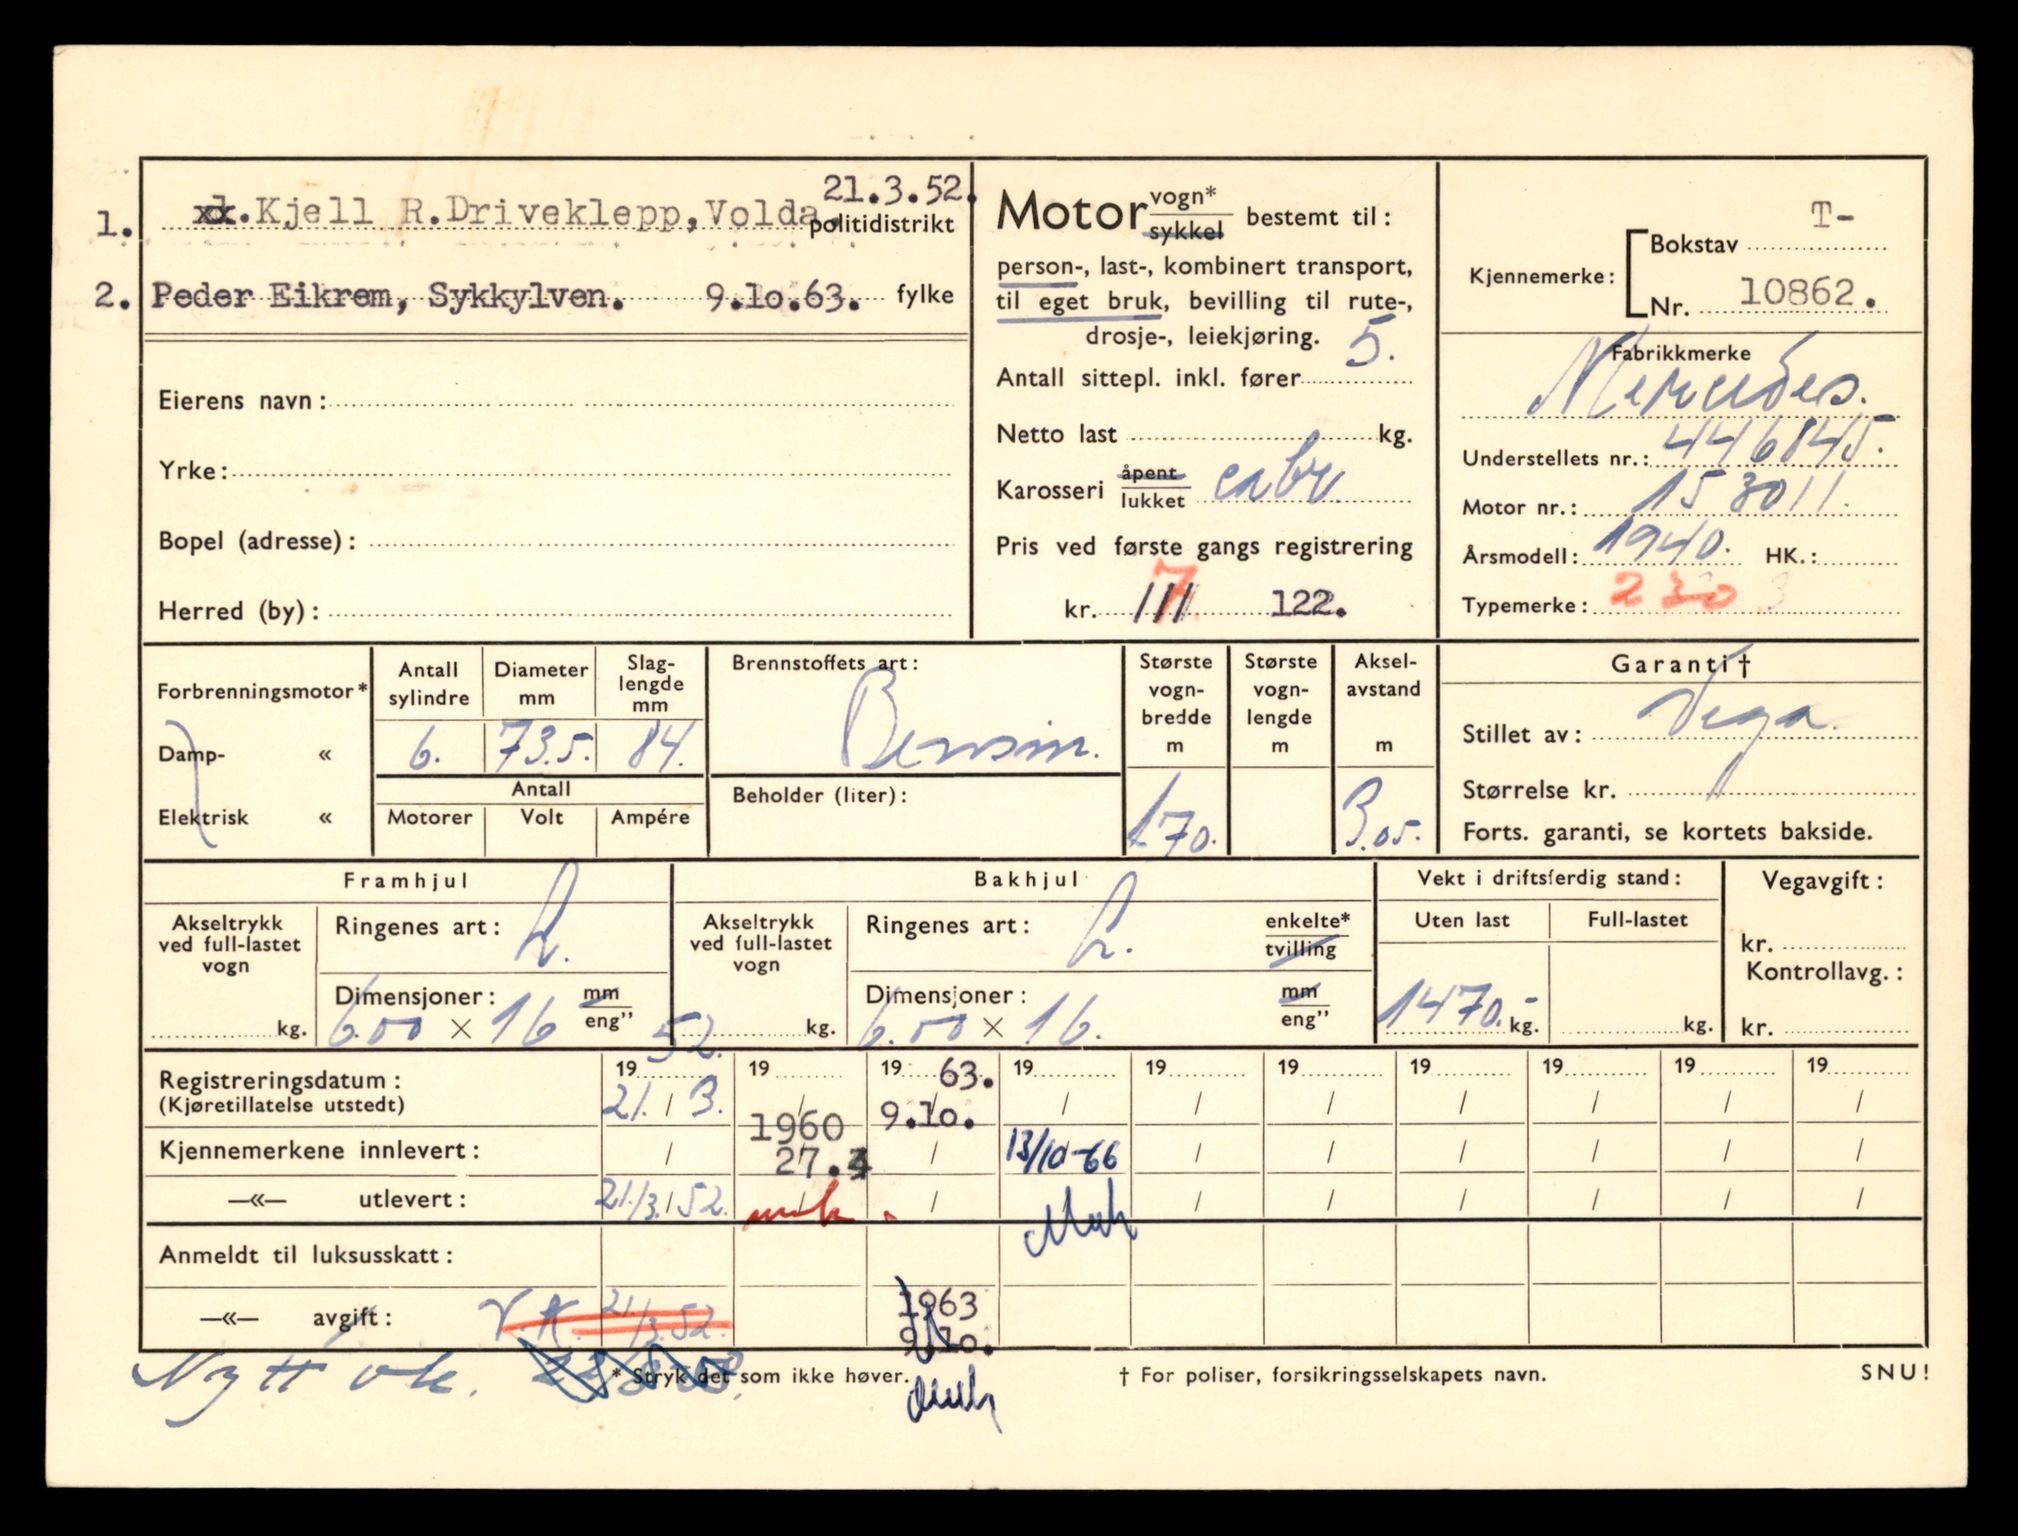 21.3.52.
1. xx.Kjell R.Driveklepp,Volda. politidistrikt
2. Peder Eikrem, Sykkylven. 9.1o.63. fylke
Eierens navn:
Yrke:
Bopel (adresse):
Herred (by):
Motor vogn* sykkel bestemt til:
person-, last-, kombinert transport,
til eget bruk, bevilling til rute-,
drosje-, leiekjøring.
Antall sittepl. inkl. fører 5.
Netto last kg.
Karosseri åpent lukket cabr.
Pris ved første gangs registrering
kr. 122.
T-
Bokstav
Kjennemerke:
Nr. 10862.
Fabrikkmerke
Mercedes.
Understellets nr.: 446845.
Motor nr.: 153011.
Årsmodell: 1940. HK.:
Typemerke: 230
Forbrenningsmotor*
Damp- «
Elektrisk «
Antall sylindre
Diameter mm
Slag-lengde mm
6. 73.5. 84.
Antall
Motorer Volt Ampére
Brennstoffets art:
Bensin.
Beholder (liter):
Største vogn-bredde m
Største vogn-lengde m
Aksel-avstand m
1.70. 3.05.
Garanti†
Stillet av: Vega.
Størrelse kr.
Forts. garanti, se kortets bakside.
Framhjul
Akseltrykk ved full-lastet vogn
kg.
Ringenes art: L.
Dimensjoner: mm
6.00 × 16 eng”
Bakhjul
Akseltrykk ved full-lastet vogn
kg.
Ringenes art: L. enkelte* tvilling
Dimensjoner: mm
6.00 × 16. eng”
Vekt i driftsferdig stand:
Uten last Full-lastet
1470.- kg. kg.
Vegavgift:
kr.
Kontrollavg.:
kr.
19 52. 19 19 63. 19 19 19 19 19 19 19
Registreringsdatum:
(Kjøretillatelse utstedt)
21. / 3. / 9.1o. / / / / / / /
Kjennemerkene innlevert: / 1960 27.4 / 13/10-66 / / / / / /
—«— utlevert: 21/3. 52. / / / / / / / /
Anmeldt til luksusskatt:
—«— avgift: V.K. 21/3.52. 1963 9.1o.
Nytt vk.
* Stryk det som ikke høver.
† For poliser, forsikringsselskapets navn.
SNU!